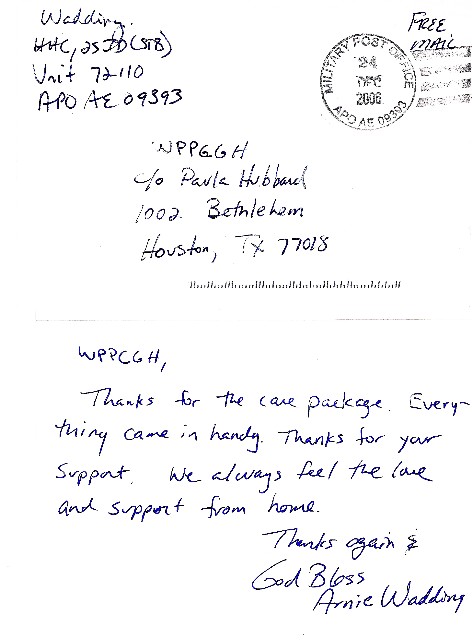 Wadding
HHC, 25ID (STB)
Unit 72110
APO AE 09393
FREE
MAIL
MILITARY POST OFFICE
24
DEC
2006
APO AE 09393
WPPGGH
c/o Paula Hubbard
1002 Bethlehem
Houston, TX 77018
WPPCGH,
Thanks for the care package. Every-
thing came in handy. Thanks for your
Support. We always feel the love
and support from home.
Thanks again &
God Bless
Arnie Wadding